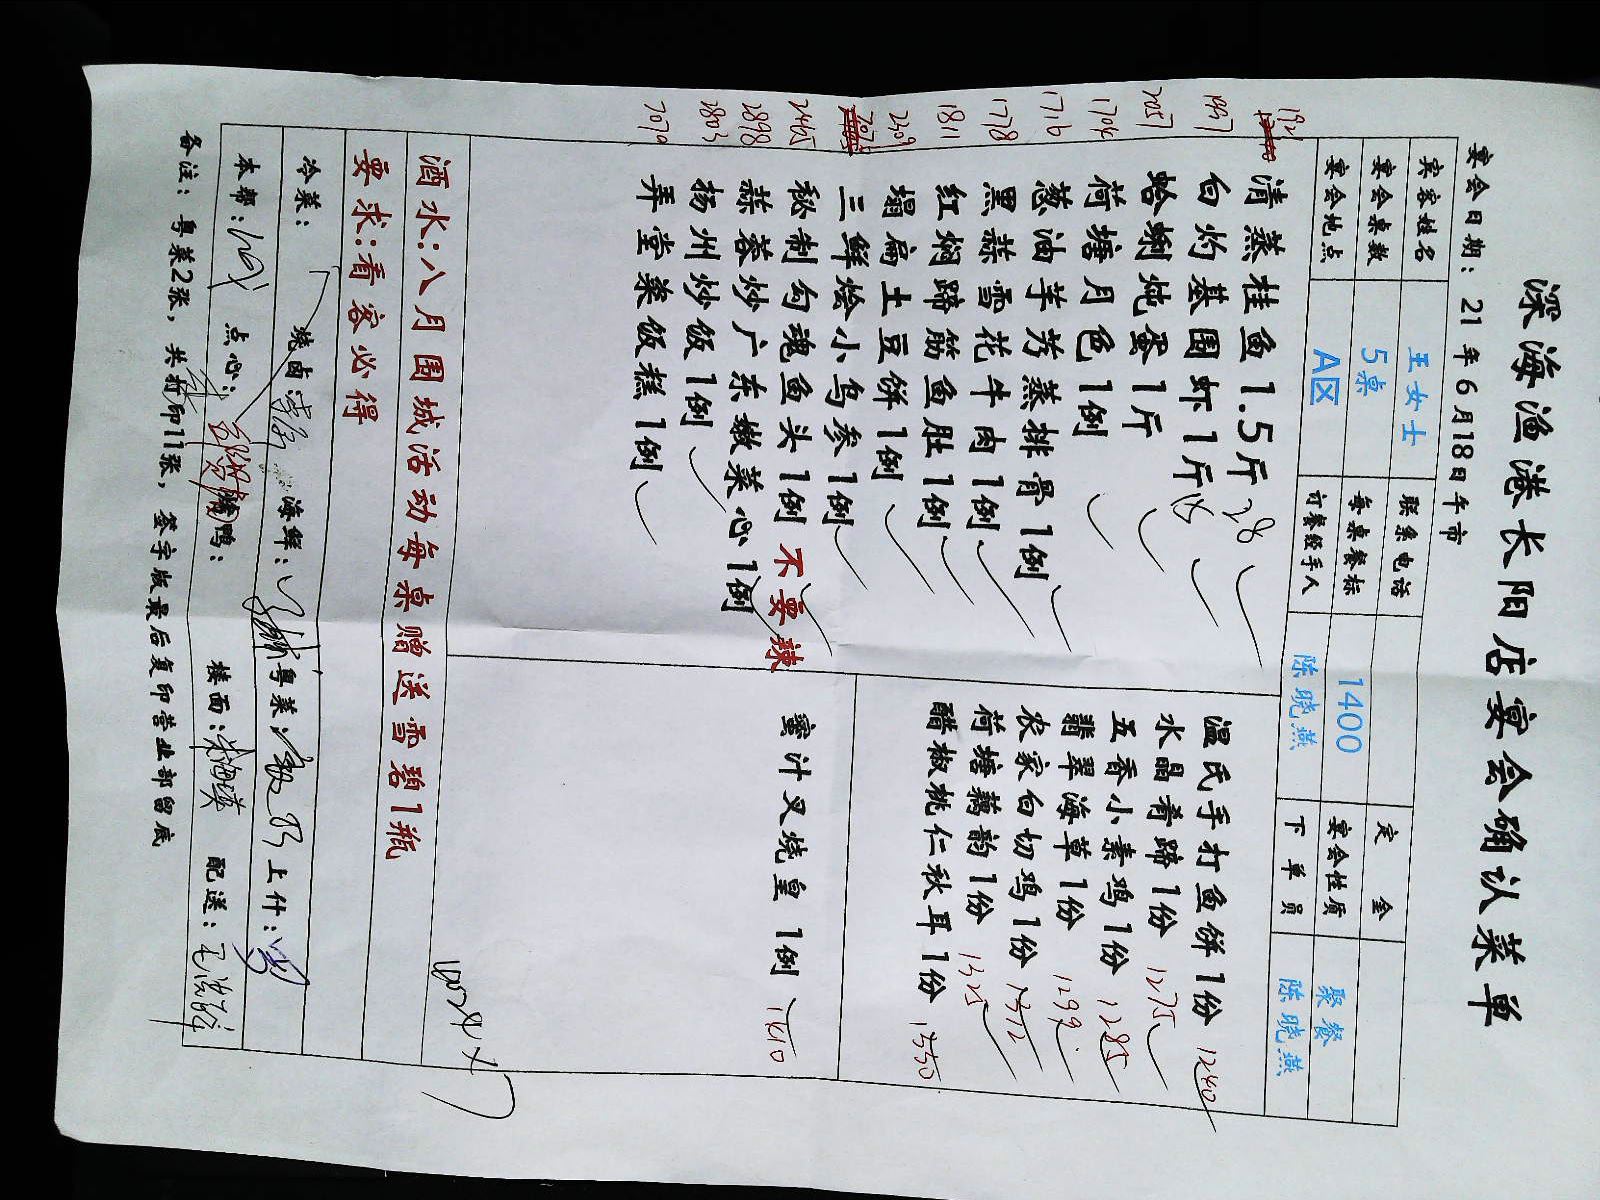 深海渔港长阳店宴会确认菜单
宴会日期：21年6月18日午市
宾客姓名 王女士 联系电话 定金
宴会桌数 5桌 每桌餐标 1400 宴会性质 聚餐
宴会地点 A区 订餐经手人 陈晓燕 下单员 陈晓燕
清蒸桂鱼1.5斤 28
1937 白灼基围虾1斤
2057 蛤蜊炖蛋1斤
1704 荷塘月色1例
1716 葱油芋艿蒸排骨1例
1778 黑蒜雪花牛肉1例
1811 红焖蹄筋鱼肚1例
2309 塌扁土豆饼1例
三鲜烩小乌参1例
2465 秘制勾魂鱼头1例 不要辣
2898 蒜蓉炒广东嫩菜心1例
2803 扬州炒饭1例
7070 弄堂菜饭糕1例
温氏手打鱼饼1份 1240
水晶肴蹄1份 1275
五香小素鸡1份 1285
翡翠海草1份 1299
农家白切鸡1份 1312
荷塘藕韵1份 1325
醋椒桃仁秋耳1份 1330
蜜汁叉烧皇 1例 1610
酒水：八月围城活动每桌赠送雪碧1瓶
要求：看客必得
冷菜： 烧卤： 海鲜： 粤菜： 上什：
本帮： 点心： 鸭： 楼面： 配送：
备注：粤菜2张，共打印11张，签字版最后复印营业部留底